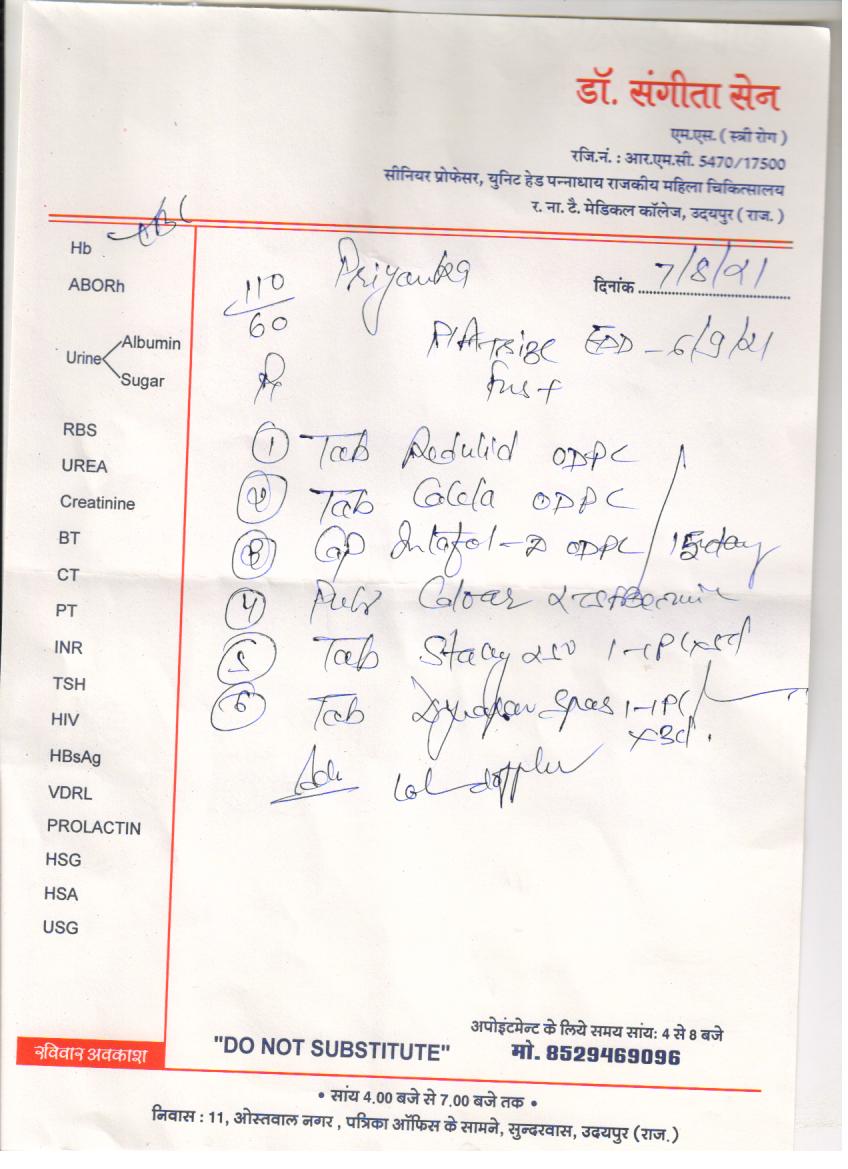 डॉ. संगीता सेन
एम.एस. ( स्त्री रोग )
रजि.नं. : आर.एम.सी. 5470/17500
सीनियर प्रोफेसर, युनिट हेड पन्नाधाय राजकीय महिला चिकित्सालय
र. ना. टै. मेडिकल कॉलेज, उदयपुर ( राज. )
Hb
ABORh
Urine
Albumin
Sugar
RBS
UREA
Creatinine
BT
CT
PT
INR
TSH
HIV
HBsAg
VDRL
PROLACTIN
HSG
HSA
USG
Priyanka
दिनांक 7/8/21
110
60
EDD - 6/9/21
FHS +
① Tab ODPC
② Tab ODPC
③ Cap ODPC / 15 day
④
⑤ Tab 1-1PC x 5d
⑥ Tab spas 1-1PC
x 3d.
Adv Col doppler
रविवार अवकाश
"DO NOT SUBSTITUTE"
अपोइंटमेन्ट के लिये समय सांय: 4 से 8 बजे
मो. 8529469096
• सांय 4.00 बजे से 7.00 बजे तक •
निवास : 11, ओस्तवाल नगर , पत्रिका ऑफिस के सामने, सुन्दरवास, उदयपुर (राज.)